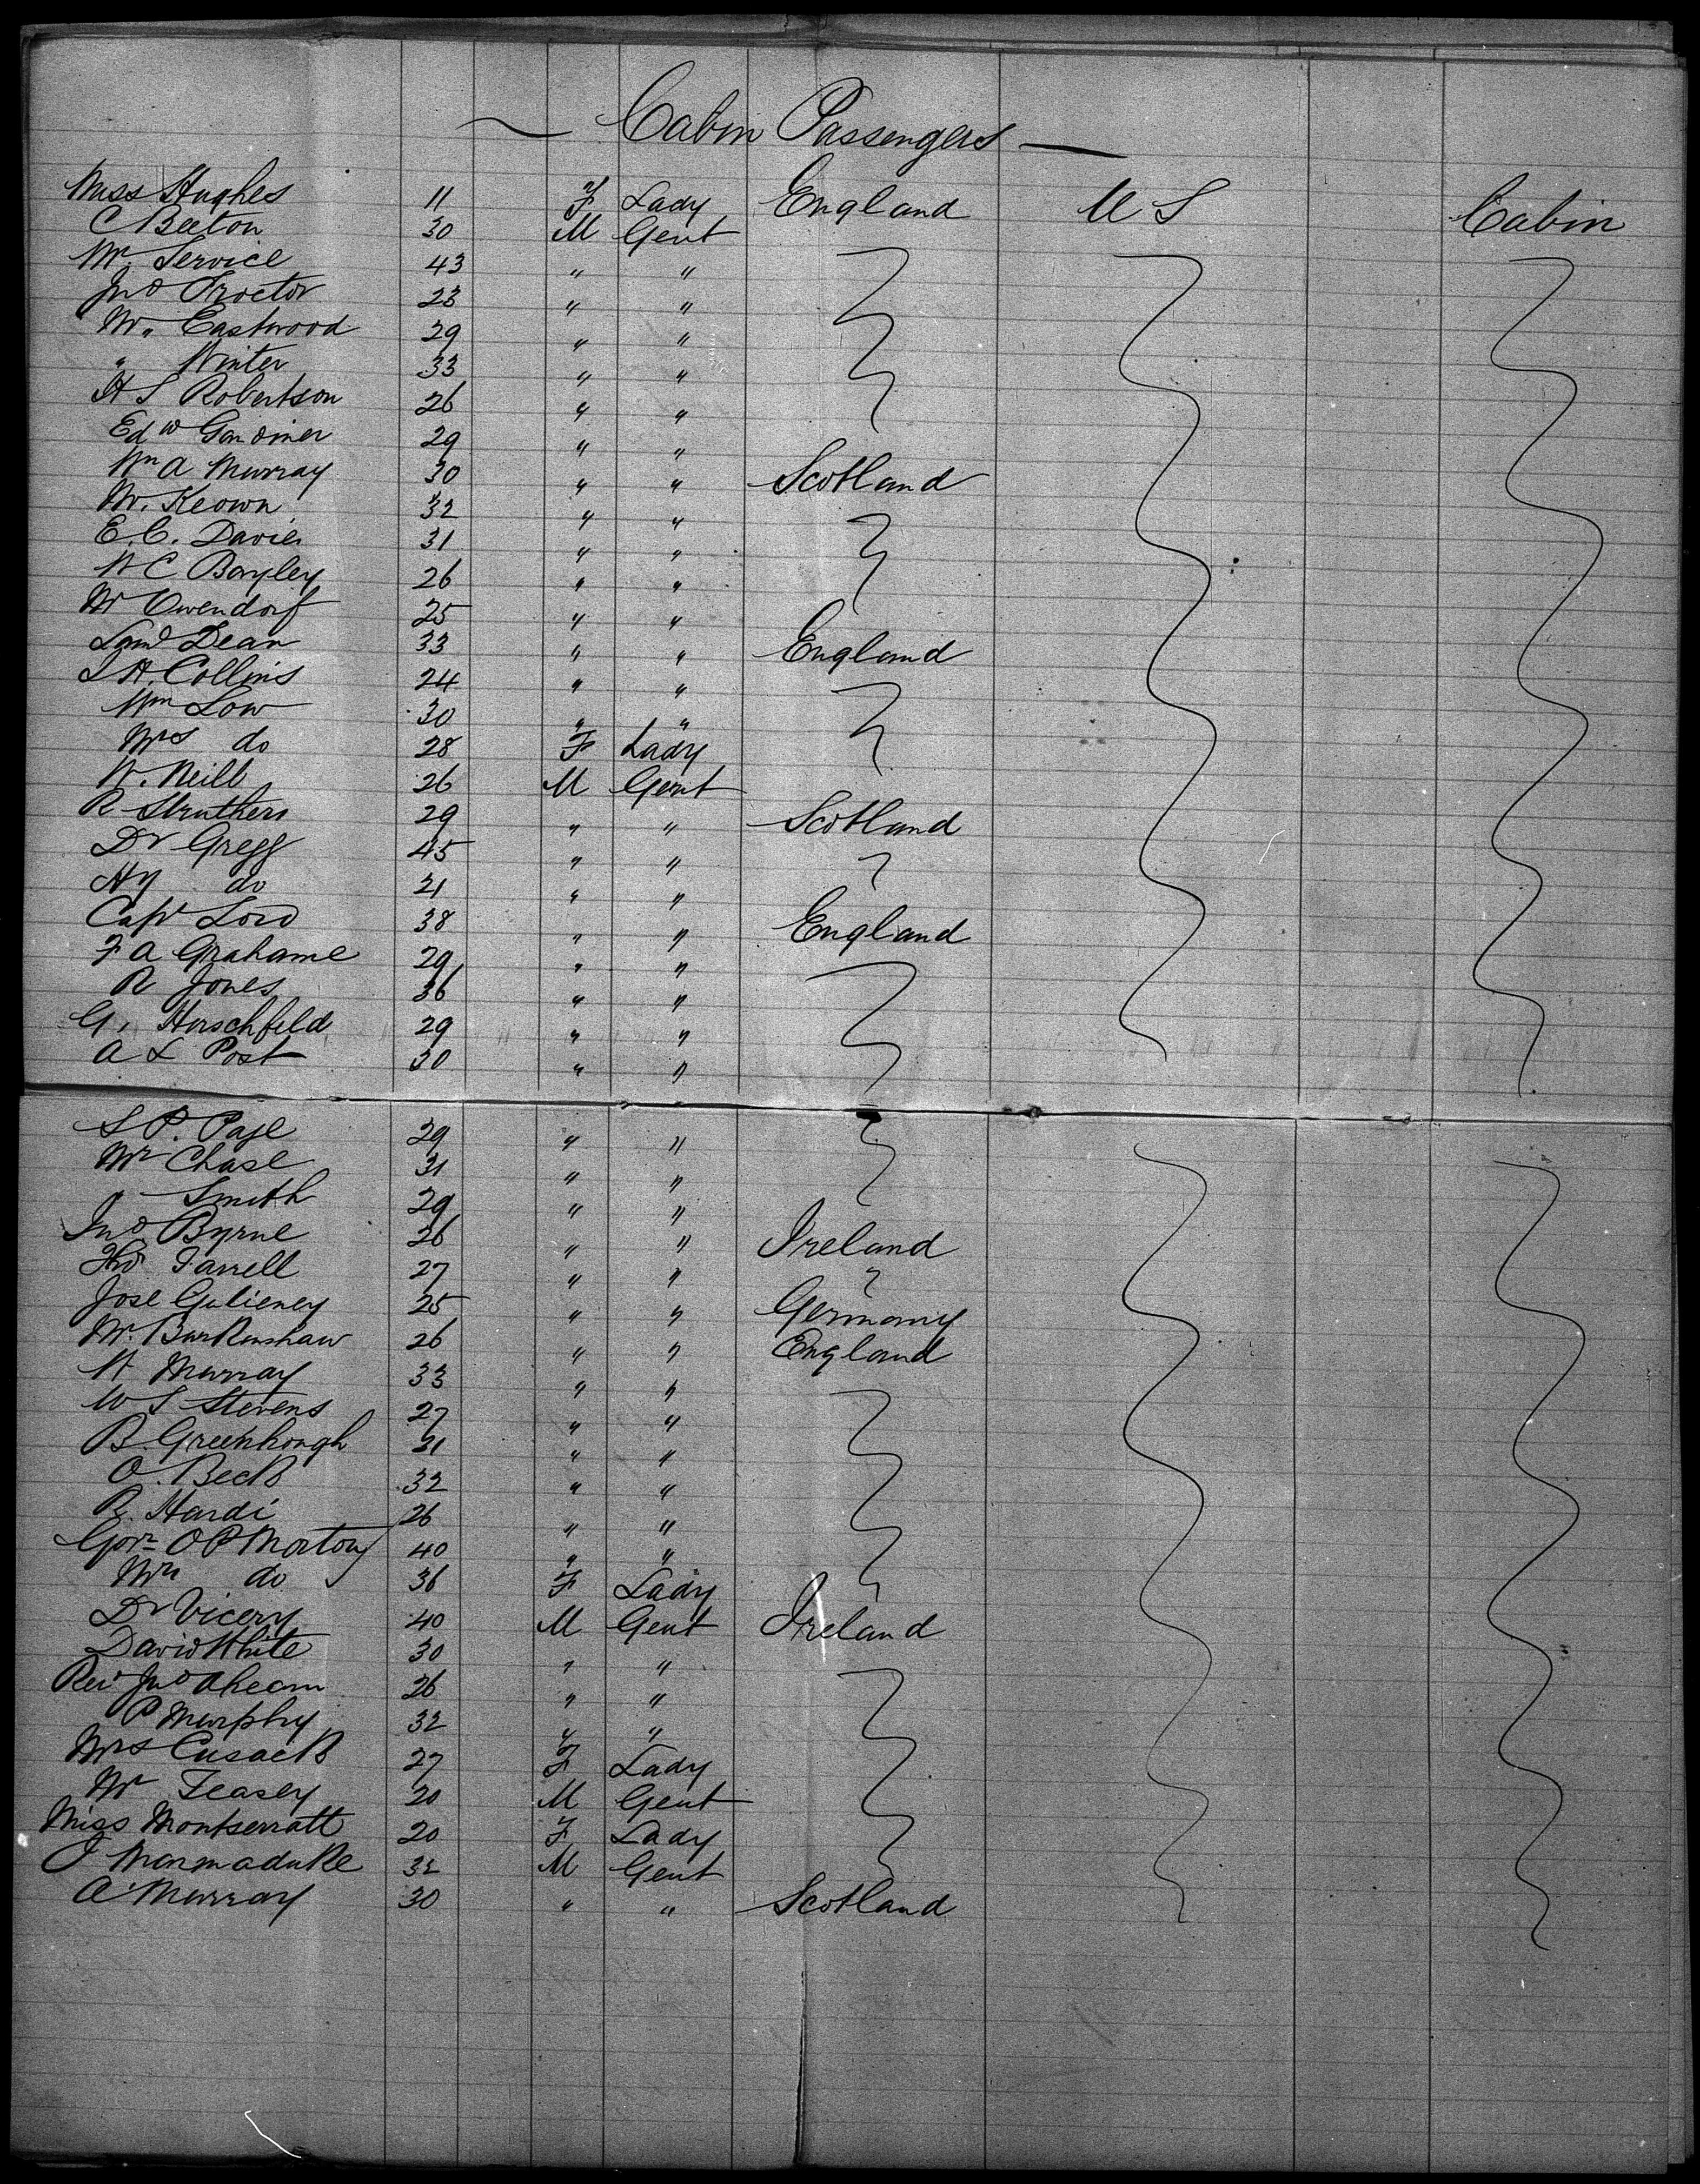 Cabin Passengers
Miss Hughes 11 F Lady England U S Cabin
C Beeton 30 M Gent
Mr. Service 43 " "
Jno Proctor 23 " "
Mr. Eastwood 29 " "
" Winter 33 " "
H S Robertson 26 " "
Edwd Gardiner 29 " "
Wm A Murray 30 " " Scotland
Mr. Keown 32 " "
E. C. Davies 31 " "
W C Bayley 26 " "
Mr Owendorf 25 " "
Saml Dean 33 " " England
S H. Collins 24 " "
Wm Low 30 " "
Mrs do 28 F Lady
W. Neill 26 M Gent
R Struthers 29 " " Scotland
Dr Gregg 45 " "
Hy do 21 " "
Capt Lord 38 " " England
F A Grahame 29 " "
R Jones 36 " "
G. Herschfeld 29 " "
A L Post 30 " "
S P. Page 29 " "
Mr Chase 31 " "
Smith 29 " "
Jno Byrne 26 " " Ireland
Thos Farrell 27 " "
Jose 25 " " Germany
Mr. Burkinshaw 26 " " England
H Murray 33 " "
W S Stevens 27 " "
B. Greenhough 31 " "
O. Beck 32 " "
R. Hardi 26 " "
Govr O P Morton 40 " "
Mrs do 36 F Lady
Dr Vicery 40 M Gent Ireland
David White 30 " "
Revd Jno Ahearn 26 " "
P Murphy 32 " "
Mrs Cusack 27 F Lady
Mr Feasey 20 M Gent
Miss Montserratt 20 F Lady
J Marmaduke 32 M Gent
A Murray 30 " " Scotland